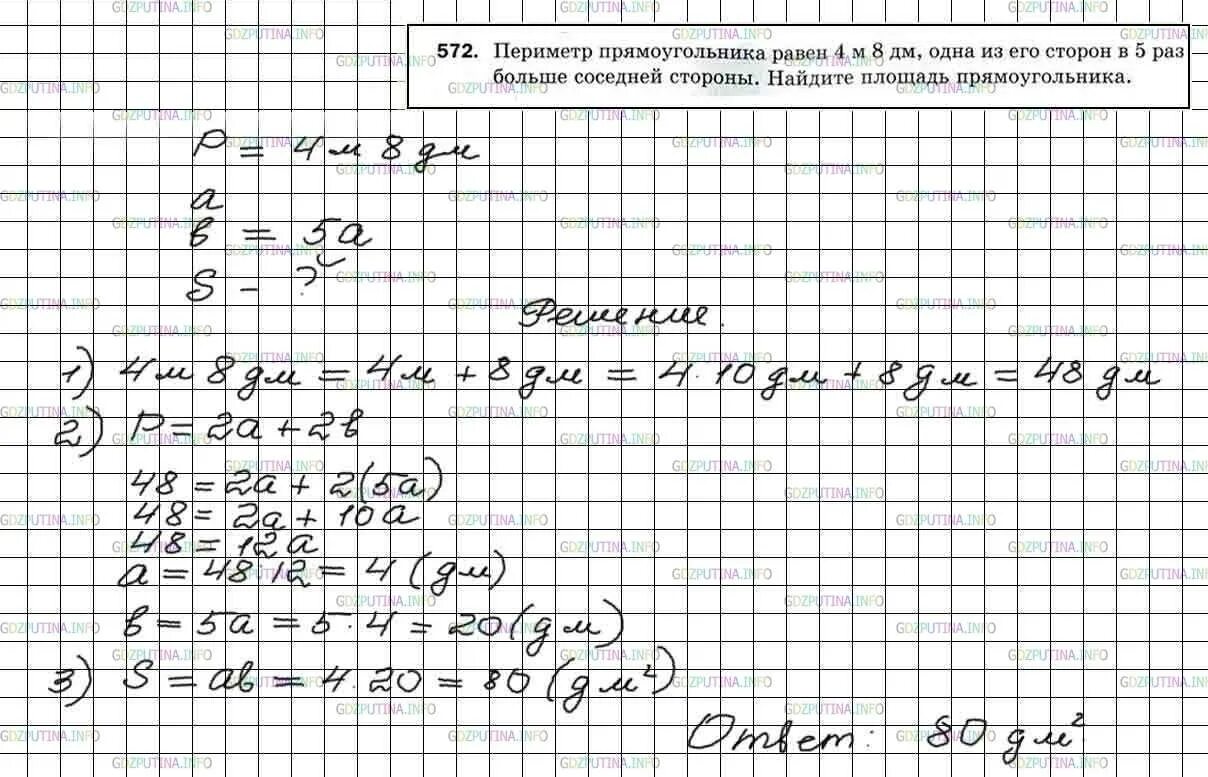 572. Периметр прямоугольника равен 4 м 8 дм, одна из его сторон в 5 раз
больше соседней стороны. Найдите площадь прямоугольника.
P = 4 м 8 дм
a
b = 5a
S - ?
Решение.
1) 4 м 8 дм = 4 м + 8 дм = 4·10 дм + 8 дм = 48 дм
2) P = 2a + 2b
48 = 2a + 2(5a)
48 = 2a + 10a
48 = 12a
a = 48:12 = 4 (дм)
b = 5a = 5·4 = 20 (дм)
3) S = ab = 4·20 = 80 (дм²)
Ответ: 80 дм²
GDZPUTINA.INFO